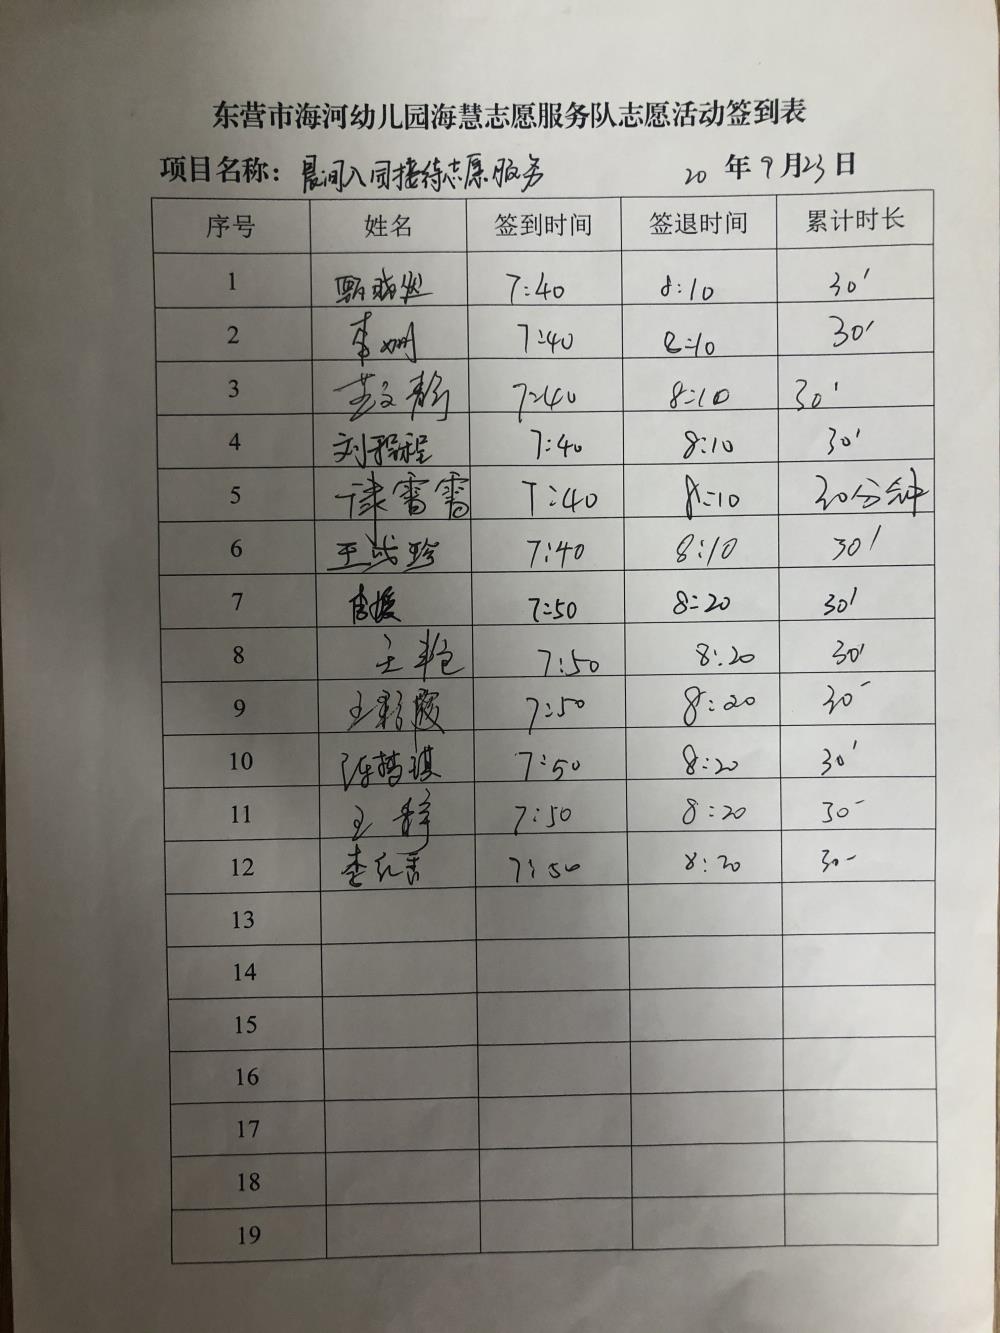 东营市海河幼儿园海慧志愿服务队志愿活动签到表
项目名称：晨间入园接待志愿服务 20 年 9 月 23 日
序号 姓名 签到时间 签退时间 累计时长
1 7:40 8:10 30'
2 7:40 8:10 30'
3 7:40 8:10 30'
4 7:40 8:10 30'
5 7:40 8:10 30分钟
6 7:40 8:10 30'
7 7:50 8:20 30'
8 7:50 8:20 30'
9 王彩霞 7:50 8:20 30'
10 陈梦琪 7:50 8:20 30'
11 7:50 8:20 30'
12 7:50 8:20 30'
13
14
15
16
17
18
19